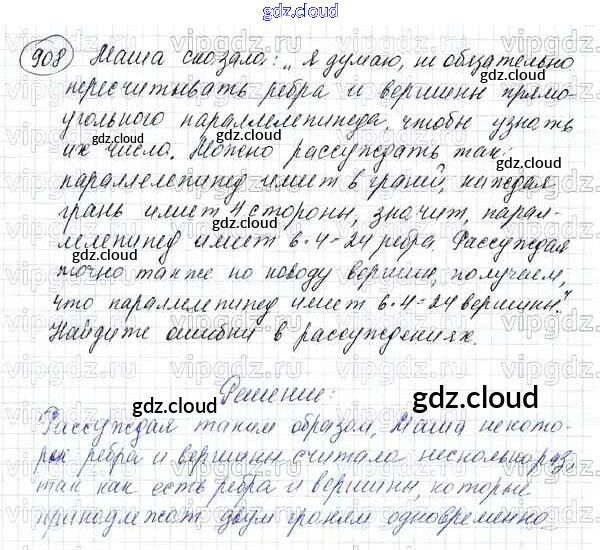 gdz.cloud
908 Маша сказала: „Я думаю, не обязательно
пересчитывать ребра и вершины прямо-
угольного параллелепипеда, чтобы узнать
их число. Можно рассуждать так:
параллелепипед имеет 6 граней, каждая
грань имеет 4 стороны, значит, парал-
лелепипед имеет 6·4=24 ребра. Рассуждая
точно также по поводу вершин, получаем,
что параллелепипед имеет 6·4=24 вершины."
Найдите ошибки в рассуждениях.
Решение:
Рассуждая таким образом, Маша некото-
рые ребра и вершины считала несколько раз,
так как есть ребра и вершины, которые
принадлежат двум граням одновременно.